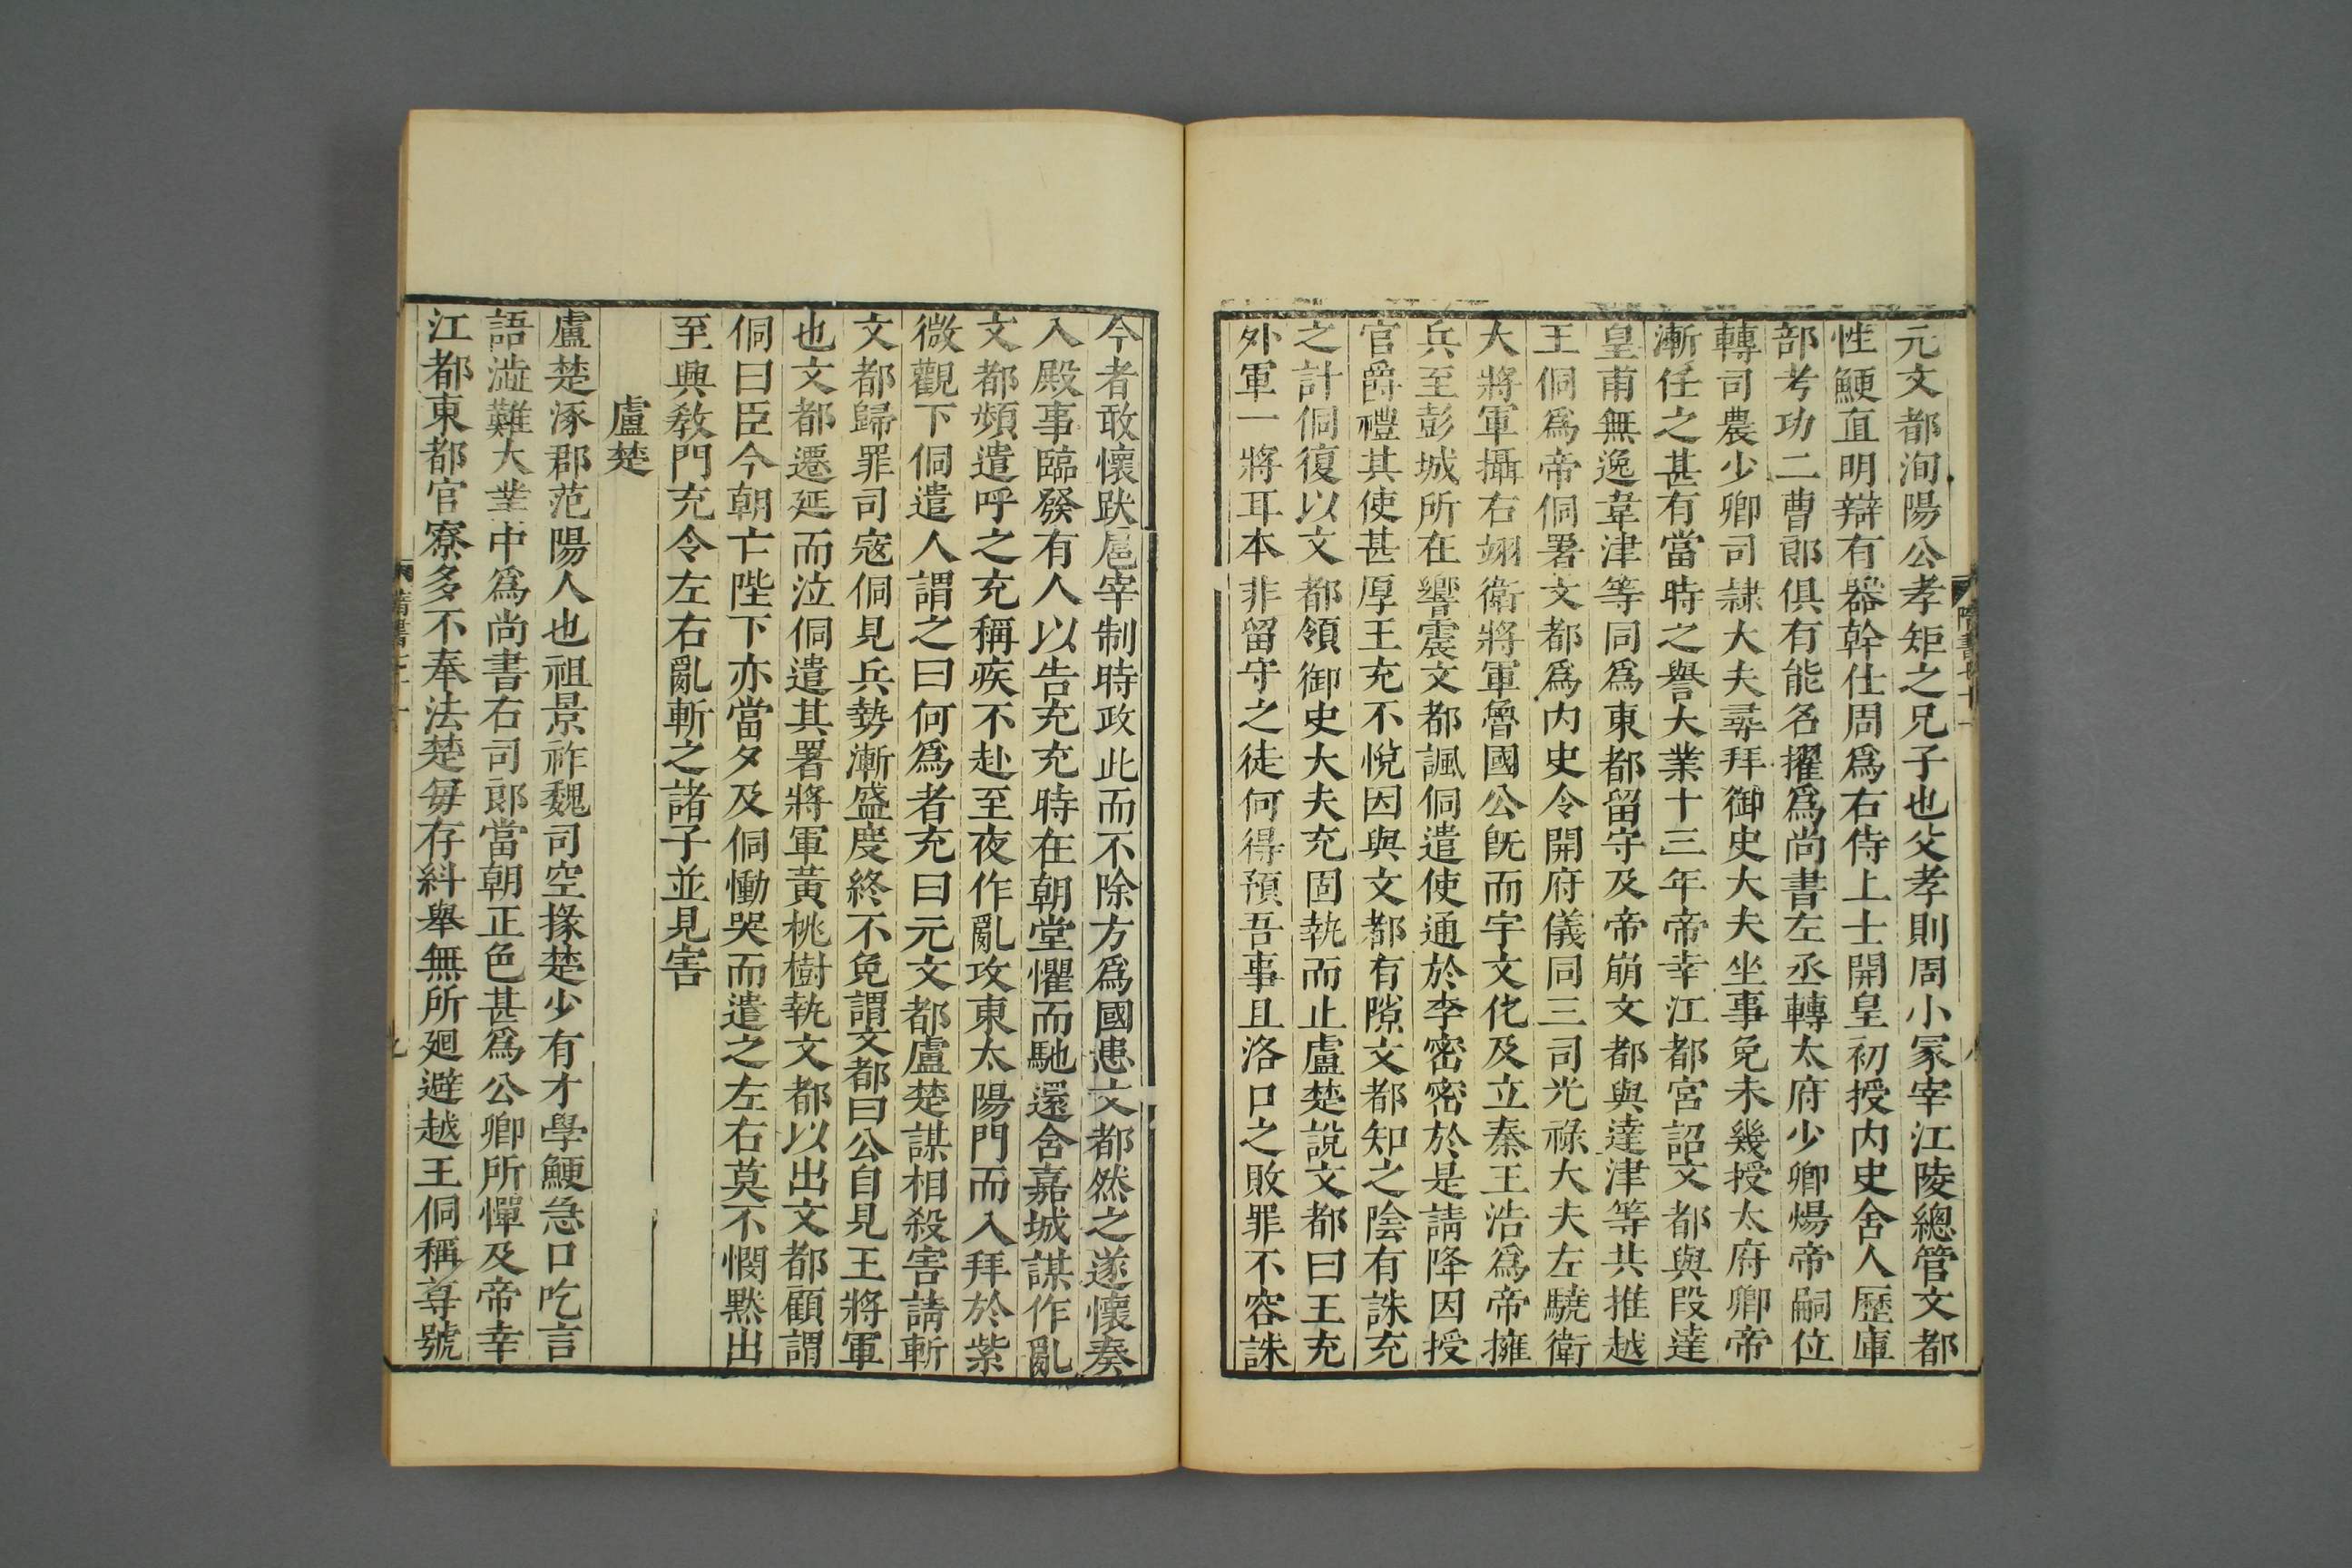 元文都洵陽公孝矩之兄子也父孝則周小冢宰江陵總管文都
性鯁直明辯有器幹仕周爲右侍上士開皇初授内史舍人歷庫
部考功二曹郎俱有能名擢爲尚書左丞轉太府少卿煬帝嗣位
轉司農少卿司隷大夫尋拜御史大夫坐事免未幾授太府卿帝
漸任之甚有當時之譽大業十三年帝幸江都宮詔文都與段達
皇甫無逸韋津等同爲東都留守及帝崩文都與達津等共推越
王侗爲帝侗署文都爲内史令開府儀同三司光祿大夫左驍衛
大將軍攝右翊衛將軍魯國公旣而宇文化及立秦王浩爲帝擁
兵至彭城所在響震文都諷侗遣使通於李密密於是請降因授
官爵禮其使甚厚王充不悅因與文都有隙文都知之陰有誅充
之計侗復以文都領御史大夫充固執而止盧楚說文都曰王充
外軍一將耳本非留守之徒何得預吾事且洛口之敗罪不容誅
今者敢懷跋扈宰制時政此而不除方爲國患文都然之遂懷奏
入殿事臨發有人以告充充時在朝堂懼而馳還含嘉城謀作亂
文都頻遣呼之充稱疾不赴至夜作亂攻東太陽門而入拜於紫
微觀下侗遣人謂之曰何爲者充曰元文都盧楚謀相殺害請斬
文都歸罪司寇侗見兵勢漸盛度終不免謂文都曰公自見王將軍
也文都遷延而泣侗遣其署將軍黃桃樹執文都以出文都顧謂
侗曰臣今朝亡陛下亦當夕及侗慟哭而遣之左右莫不憫默出
至興敎門充令左右亂斬之諸子並見害
盧楚
盧楚涿郡范陽人也祖景祚魏司空掾楚少有才學鯁急口吃言
語澁難大業中爲尚書右司郎當朝正色甚爲公卿所憚及帝幸
江都東都官寮多不奉法楚每存糾舉無所廻避越王侗稱尊號